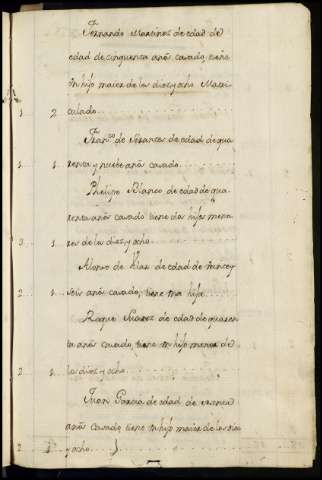 Fernando Martines de edad de
edad de cinquenta años casado, tiene
Un hijo maior de los diez y ocho Matri-
1. 2 culado
Fran.co de Ferantes de edad de qua
1. 1. renta y nuebe años casado
Phelipe Blanco de edad de qua
renta años casado tiene dos hijos meno
3. 1. res de los diez y ocho
Alonso de Diaz de edad de treinta y
2. 1. seis años casado, tiene un hijo
Roque Suarez de edad de quaren
ta años casado, tiene un hijo menor de
2. 1. los diez y ocho
Juan Garcia de edad de
años casado, tiene un hijo maior de los diez
2 y ocho